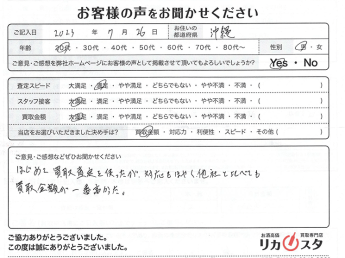 お客様の声をお聞かせください
ご記入日 2023 年 7 月 26 日 お住いの都道府県 沖縄
年齢 20代・30代・40代・50代・60代・70代・80代〜 性別 男・女
ご意見・ご感想を弊社ホームページにお客様の声として掲載させて頂いてもよろしいでしょうか? Yes・No
査定スピード 大満足・満足・やや満足・どちらでもない・やや不満・不満・( )
スタッフ接客 大満足・満足・やや満足・どちらでもない・やや不満・不満・( )
買取金額 大満足・満足・やや満足・どちらでもない・やや不満・不満・( )
当店をお選びいただきました決め手は? 買取金額・対応力・利便性・スピード・その他( )
ご意見・ご感想などぜひお聞かせください
はじめて買取査定を使ったが、対応もはやく他社と比べても
買取金額が一番高かった。
ご協力ありがとうございました。
この度は誠にありがとうございました。
お酒高価買取専門店
リカスタ